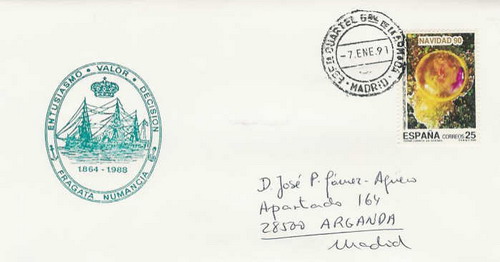 ENTUSIASMO · VALOR · DECISION
1864 - 1988
FRAGATA NUMANCIA
-7.ENE.91
MADRID
NAVIDAD 90
ESPAÑA CORREOS 25
D. José P. Gómez-Agüero
Apartado 164
28500 ARGANDA
Madrid